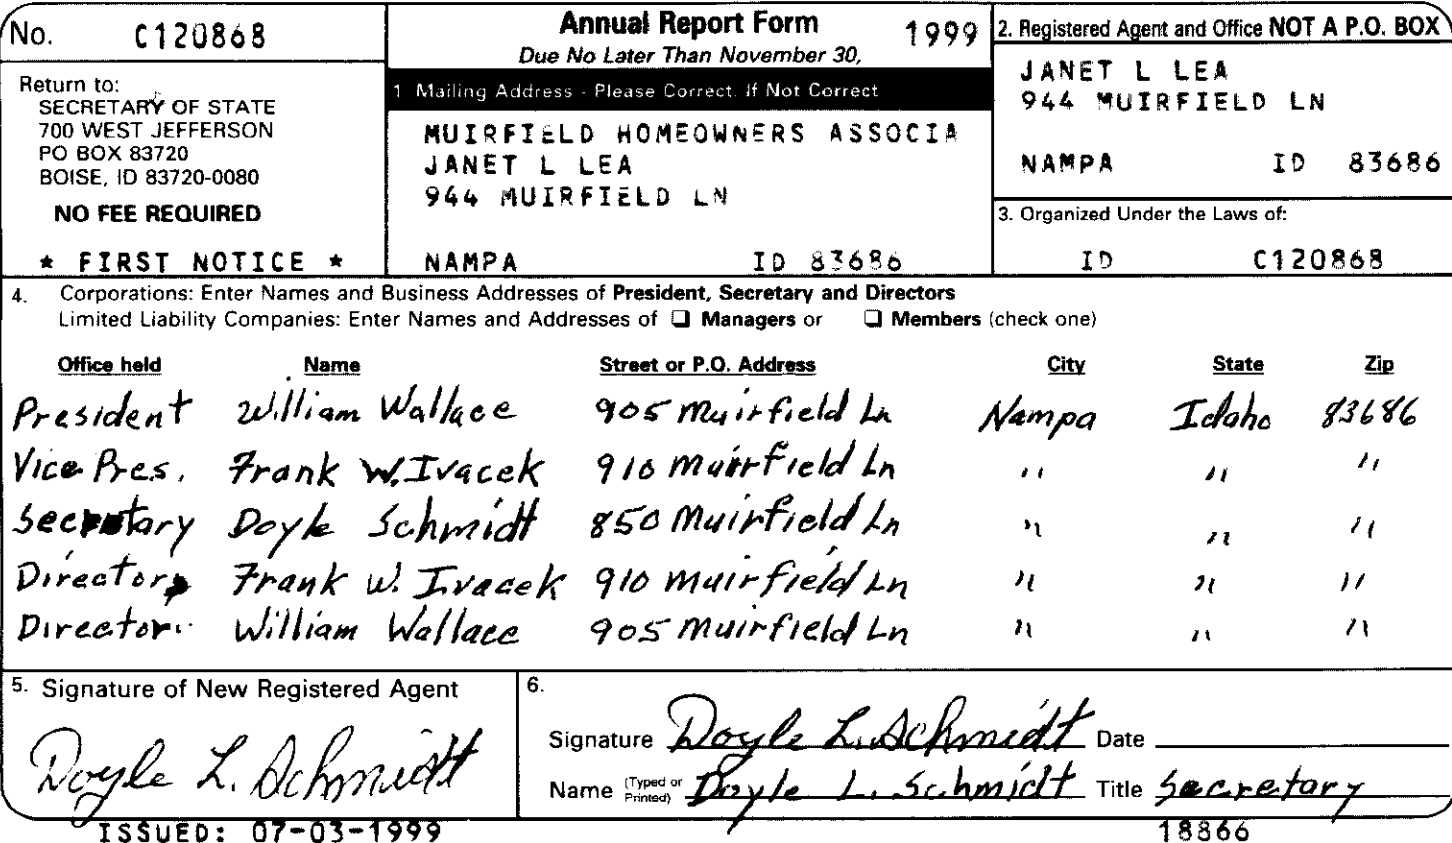 No. C120868
Annual Report Form 1999
Due No Later Than November 30,
Return to:
SECRETARY OF STATE
700 WEST JEFFERSON
PO BOX 83720
BOISE, ID 83720-0080
NO FEE REQUIRED
* FIRST NOTICE *
1 Mailing Address - Please Correct, If Not Correct
MUIRFIELD HOMEOWNERS ASSOCIA
JANET L LEA
944 MUIRFIELD LN
NAMPA ID 83686
2. Registered Agent and Office NOT A P.O. BOX
JANET L LEA
944 MUIRFIELD LN
NAMPA ID 83686
3. Organized Under the Laws of:
ID C120868
4. Corporations: Enter Names and Business Addresses of President, Secretary and Directors
Limited Liability Companies: Enter Names and Addresses of ❏ Managers or ❏ Members (check one)
Office held Name Street or P.O. Address City State Zip
President William Wallace 905 Muirfield Ln Nampa Idaho 83686
Vice Pres. Frank W. Ivacek 910 Muirfield Ln " " "
Secretary Doyle Schmidt 850 Muirfield Ln " " "
Director Frank W. Ivacek 910 Muirfield Ln " " "
Director William Wallace 905 Muirfield Ln " " "
5. Signature of New Registered Agent
Doyle L. Schmidt
6.
Signature Doyle L. Schmidt Date
Name (Typed or Printed) Doyle L. Schmidt Title Secretary
ISSUED: 07-03-1999
18866